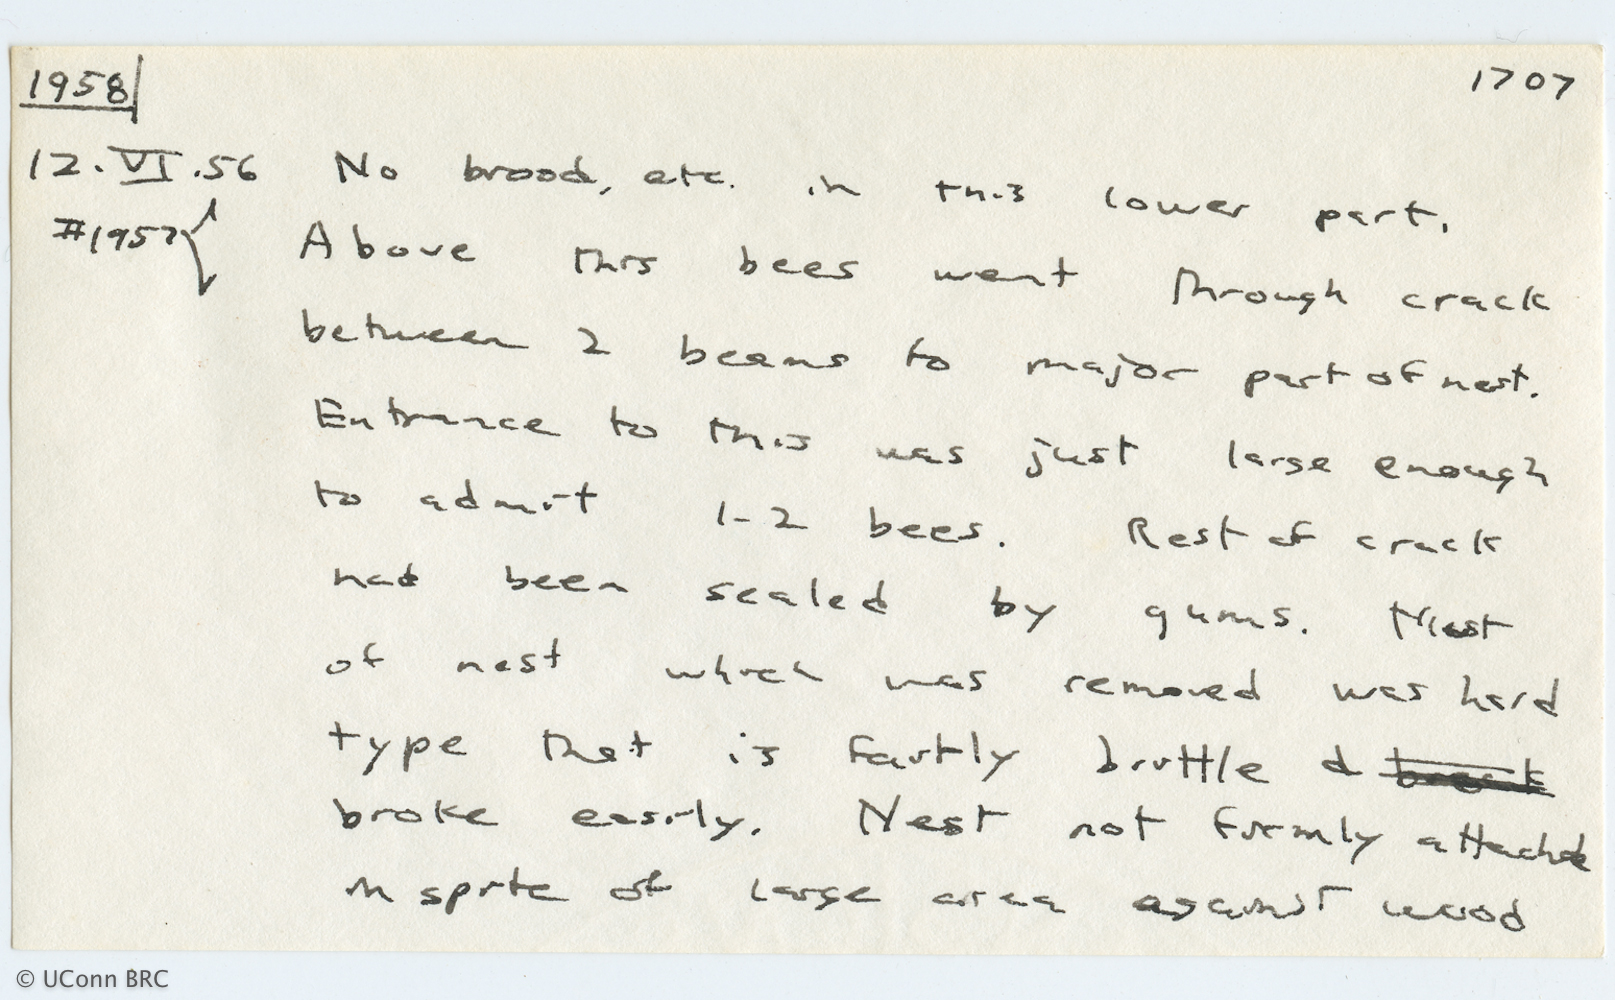 1958 1707
12.VI.56 No brood, etc. in this lower part.
#1957 Above this bees went through crack
between 2 beams to major part of nest.
Entrance to this was just large enough
to admit 1-2 bees. Rest of crack
had been sealed by gums. Most
of nest which was removed was hard
type that is fairly brittle &
broke easily. Nest not firmly attached
in spite of large area against wood
© UConn BRC